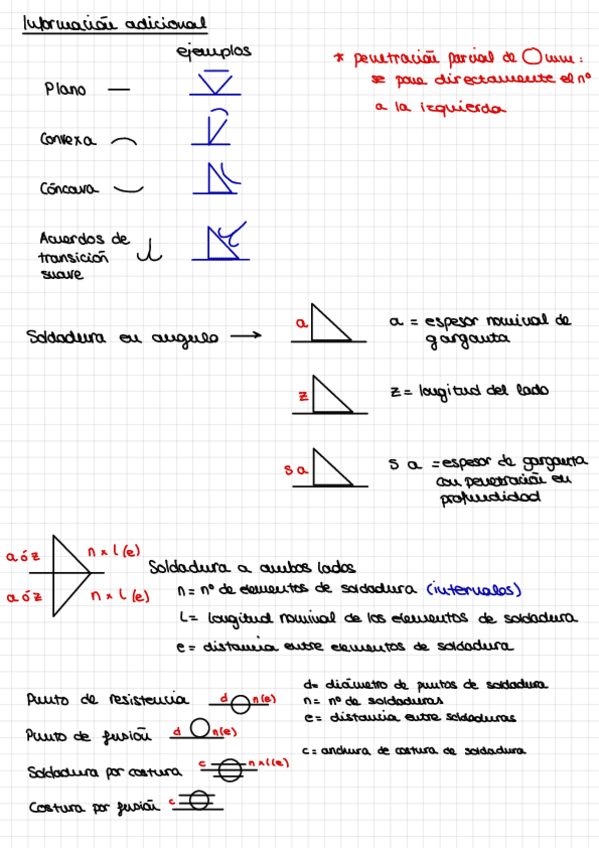 Información adicional
ejemplos
* penetración parcial de ○ mm:
se pone directamente el nº
a la izquierda
Plano
Convexa
Cóncava
Acuerdos de
transición
suave
Soldadura en angulo →
a
a = espesor nominal de
garganta
z
z = longitud del lado
s a
s a = espesor de garganta
con penetración en
profundidad
a ó z
n x l (e)
a ó z
n x l (e)
Soldadura a ambos lados
n = nº de elementos de soldadura (intervalos)
L = longitud nominal de los elementos de soldadura
e = distancia entre elementos de soldadura
Punto de resistencia
d
n(e)
d = diámetro de puntos de soldadura
n = nº de soldaduras
e = distancia entre soldaduras
Punto de fusión
d
n(e)
c = anchura de costura de soldadura
Soldadura por costura
c
n x l (e)
Costura por fusión
c